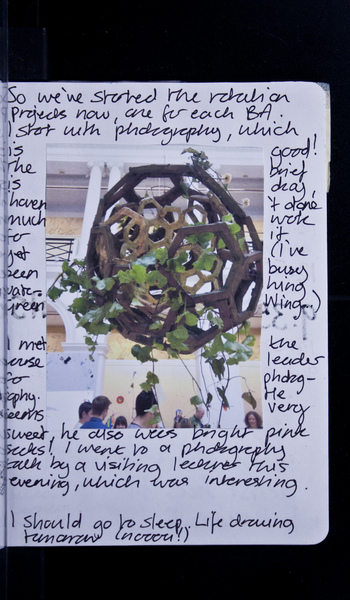 So we've started the rotation
projects now, one for each BA.
I start with photography, which
is good!
The brief
is okay,
haven't done
much work
to it
yet (I've
been busy
watc-hing
green Wing...)
I met the
course leader
for photog-
raphy. He
seems very
sweet, he also wears bright pink
socks! I went to a photography
talk by a visiting lecturer this
evening, which was interesting.
I should go to sleep. Life drawing
tomorrow (noooo!)